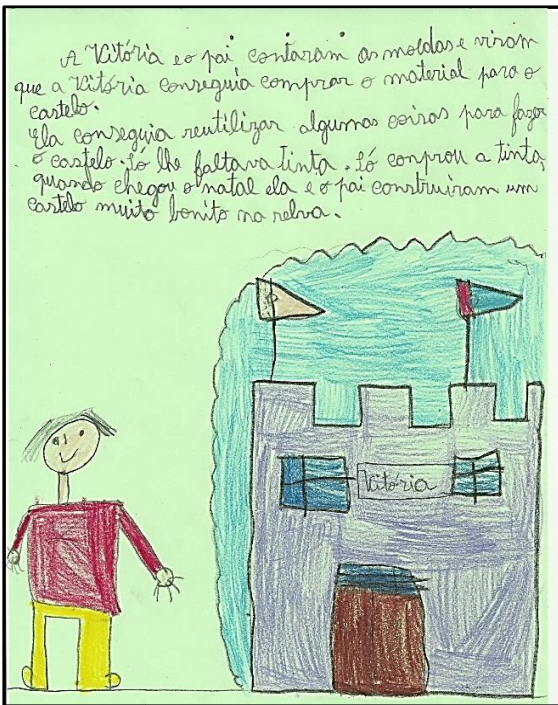 A Vitória e o pai contaram as moedas e viram
que a Vitória conseguia comprar o material para o
castelo.
Ela conseguia reutilizar algumas coisas para fazer
o castelo. Só lhe faltava tinta. Só conprou a tinta,
quando chegou o natal ela e o pai construiram um
castelo muito bonito na relva.
Vitória